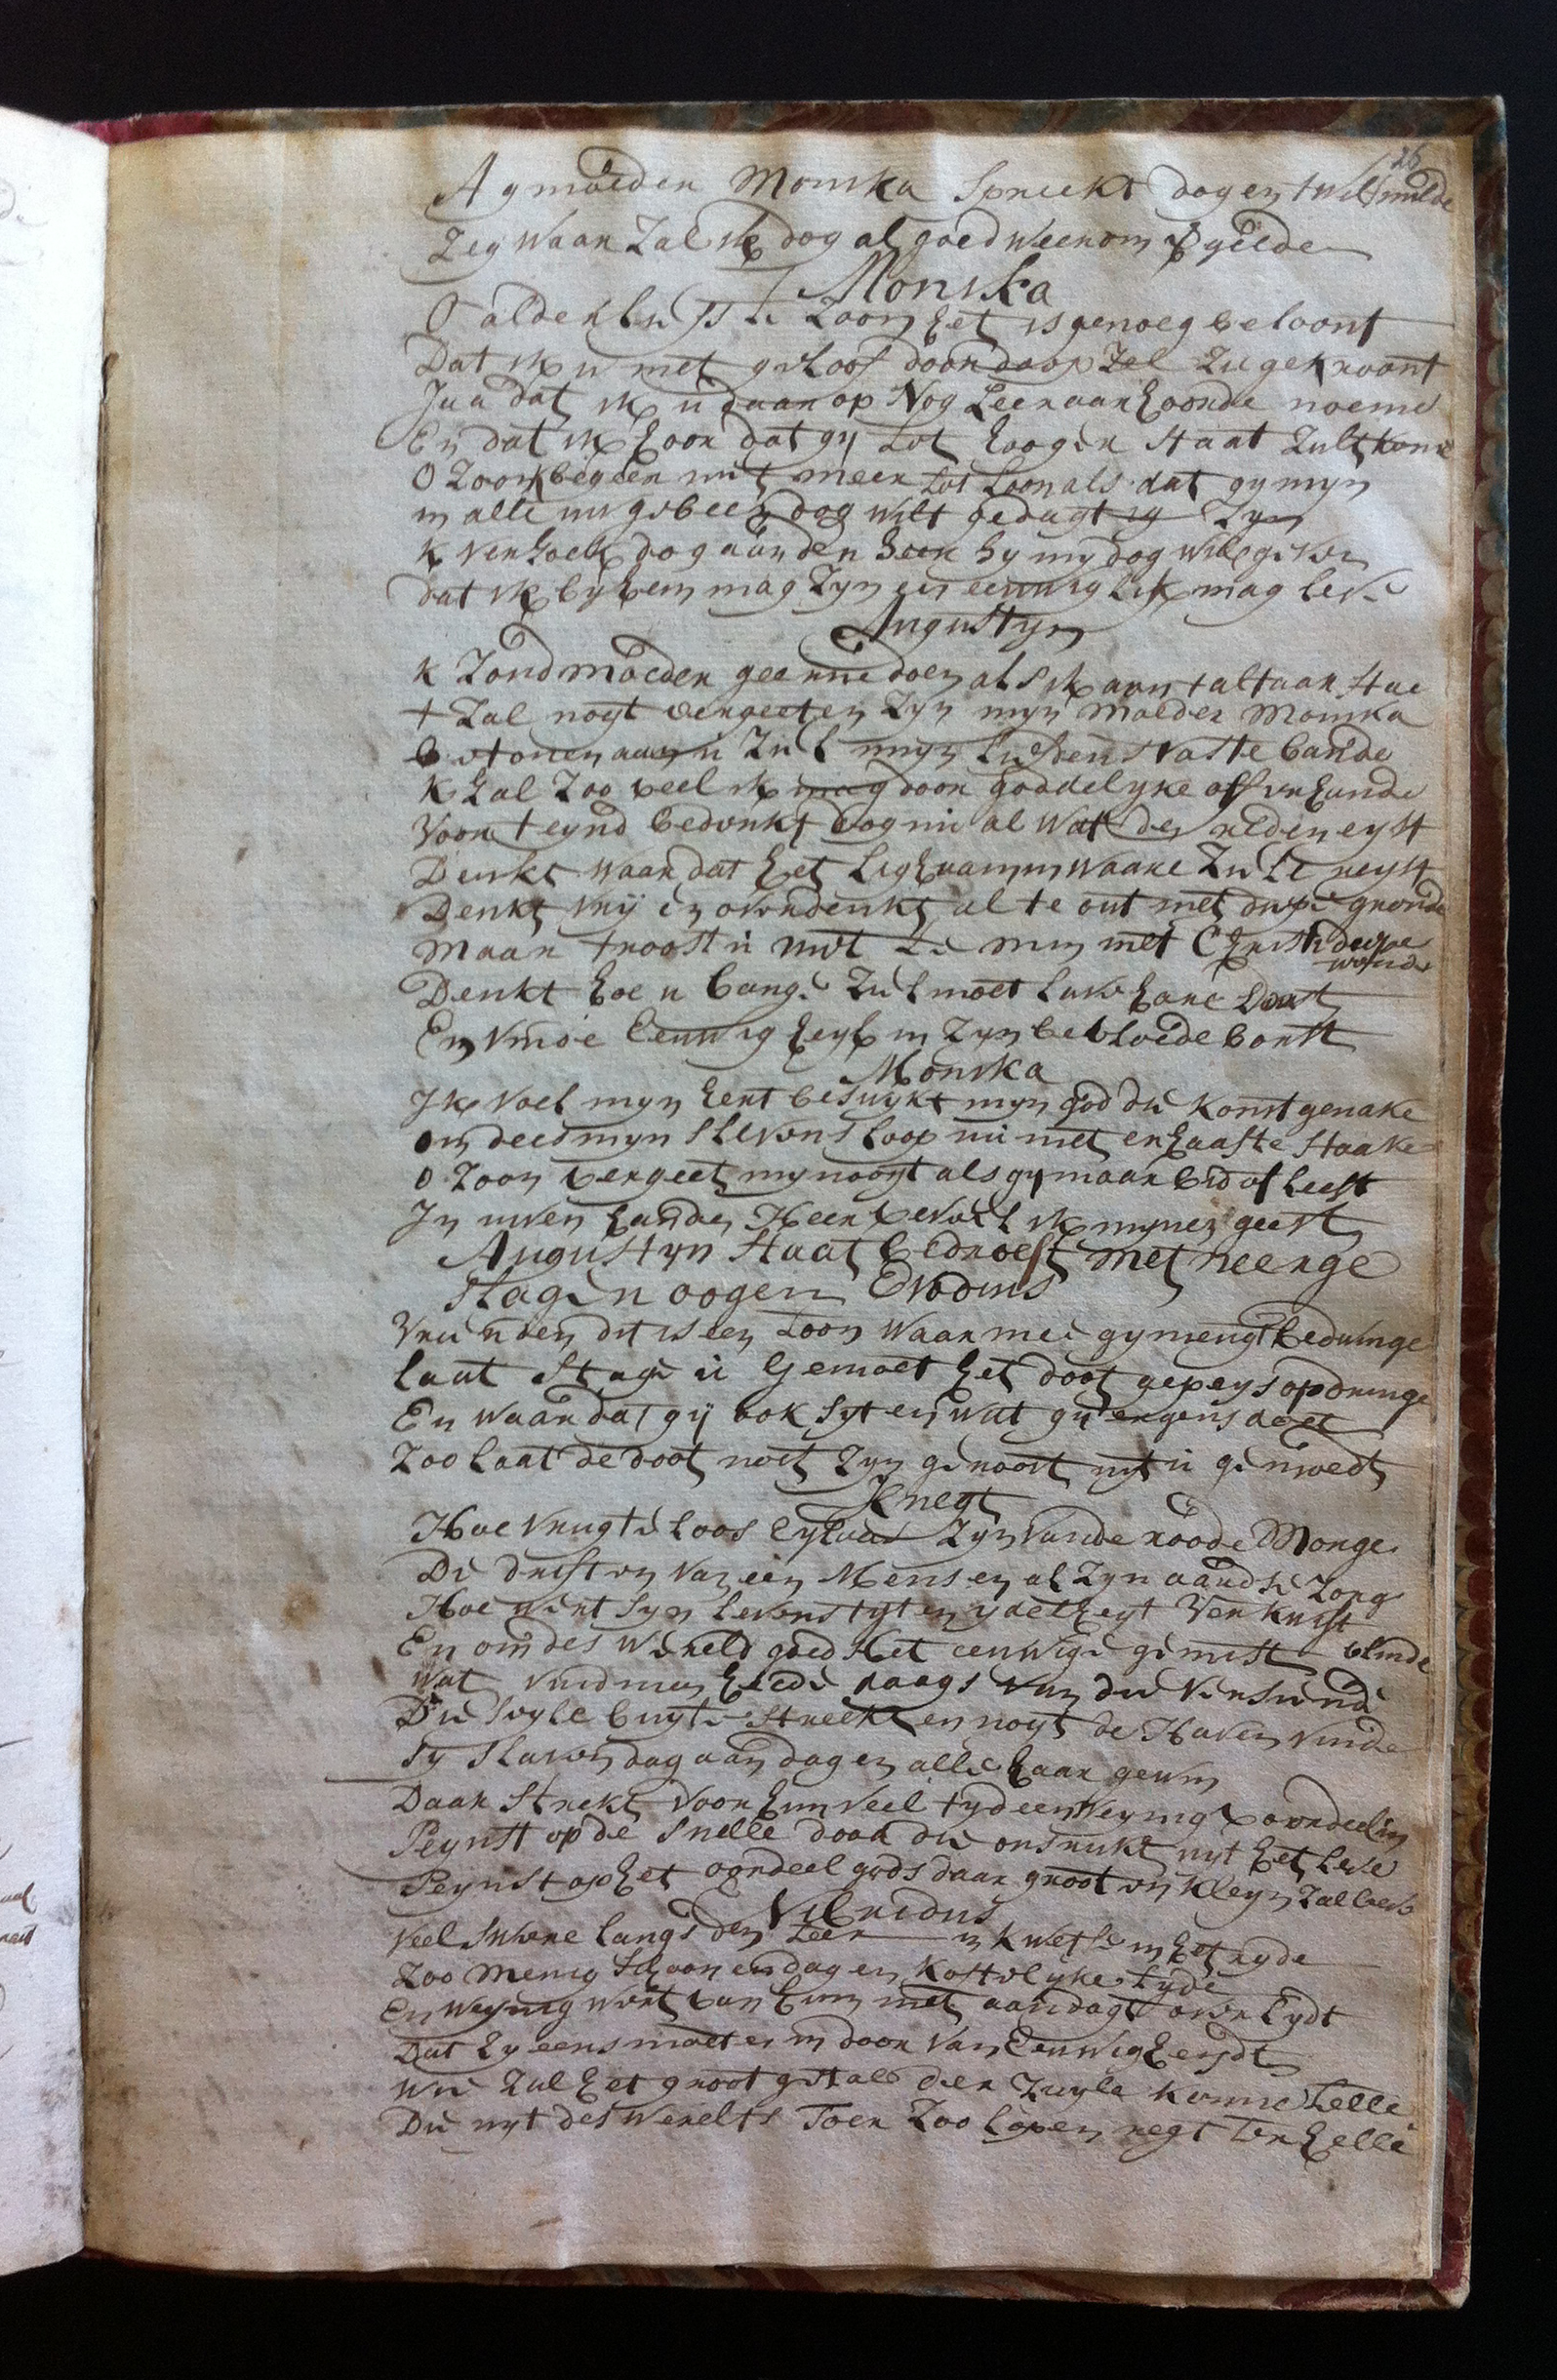 26
Ag moeder Monika Spreekt dog en twelf milde
Zeg waar Zal ik dog al goed weerom gelde
Monika
O alderliefste Zoon het is genoeg beloont
Dat ik u met geloof door doop Zal Zie gekroont
Jaa dat ik u daar op Nog Leeraar hoorde noeme
En dat ik hoor dat gy tot hooger Staat Zult kome
O Zoon k begeer niet meer tot Loon als dat gy myn
in alle uw gebeen dog wilt gedagtig Zyn
k verZoek dog aan den heer hy my dog wil geven
dat ik by hem mag Zyn en eeuwig lik mag leve
Augustyn
k Zond moeder geerne doen als ik aan t altaar Stae
t Zal noyt vergeeten Zyn myn moeder Monika
betonen aan u Zul myn liefdens vaste bande
k Zal Zoo veel ik mag door goddelyke offerhande
Voor t eynd bedenkt dog nu al wat de reden eyst
Denkt waar dat het lighaam waare Ziele reyst
Denkt vry en overdenkt al te out met diepe gronde
maar troost u met de min met Christi diepe
wonde
Denkt hoe u bange Ziel moet lave hare Dorst
En vinde Eeuwig heyl in Zyn bebloede borst
Monika
Ik voel myn hert beswykt myn god die komt genake
en deed myn Slevens loop nu met er haaste Staake
O Zoon vergeet my noyt als gy maar bid of leest
In uwen handen Heer beveel ik mynen geest
Augustyn Staat bedroeft met neerge
Slagen oogen Evodius
Vrienden dit is een Loon waar mee gy mengt bedwinge
laat Stage u Gemoet het doot gepeys opdringe
En waar dat gy ook Syt en wat gy ergens doet
Zoo laat de doot noet Zyn geroost uyt u gemoedt
Knegt
Hoe vrugteloos eylaas Zyn van de roode Monge
De driften van een Mens en al Zyn aardse Zorg
Hoe wert Syn levens tyt en ydelheyt Verkwist
En om des wereld goed Het eeuwige gemist
Wat vind men hede daags van die versiende blinde
Die Soyle buyte Streekt en noyt de Haven vinde
Sy Slaven dag aan dag en alle haar gewin
Daar Strekt voor hun veel tyd een weynig voordeel in
Peynst op de Snelle dood die ons rukt uyt het leve
Peynst op het oordeel gods daar groot en kleyn Zal beve
Nebridius
Veel Swerve langs den Zee in kwetse in het ryde
Zoo menig Schoonen dag en kostelyke tyde
En weynig wert van hun met aandagt overlydt
Dat hy eens moeten in door van Eeuwigheydt
Wie Zal het groot getal der Zuyle konne telle
Die uyt des werelts Toer Zoo lopen regt ter helle